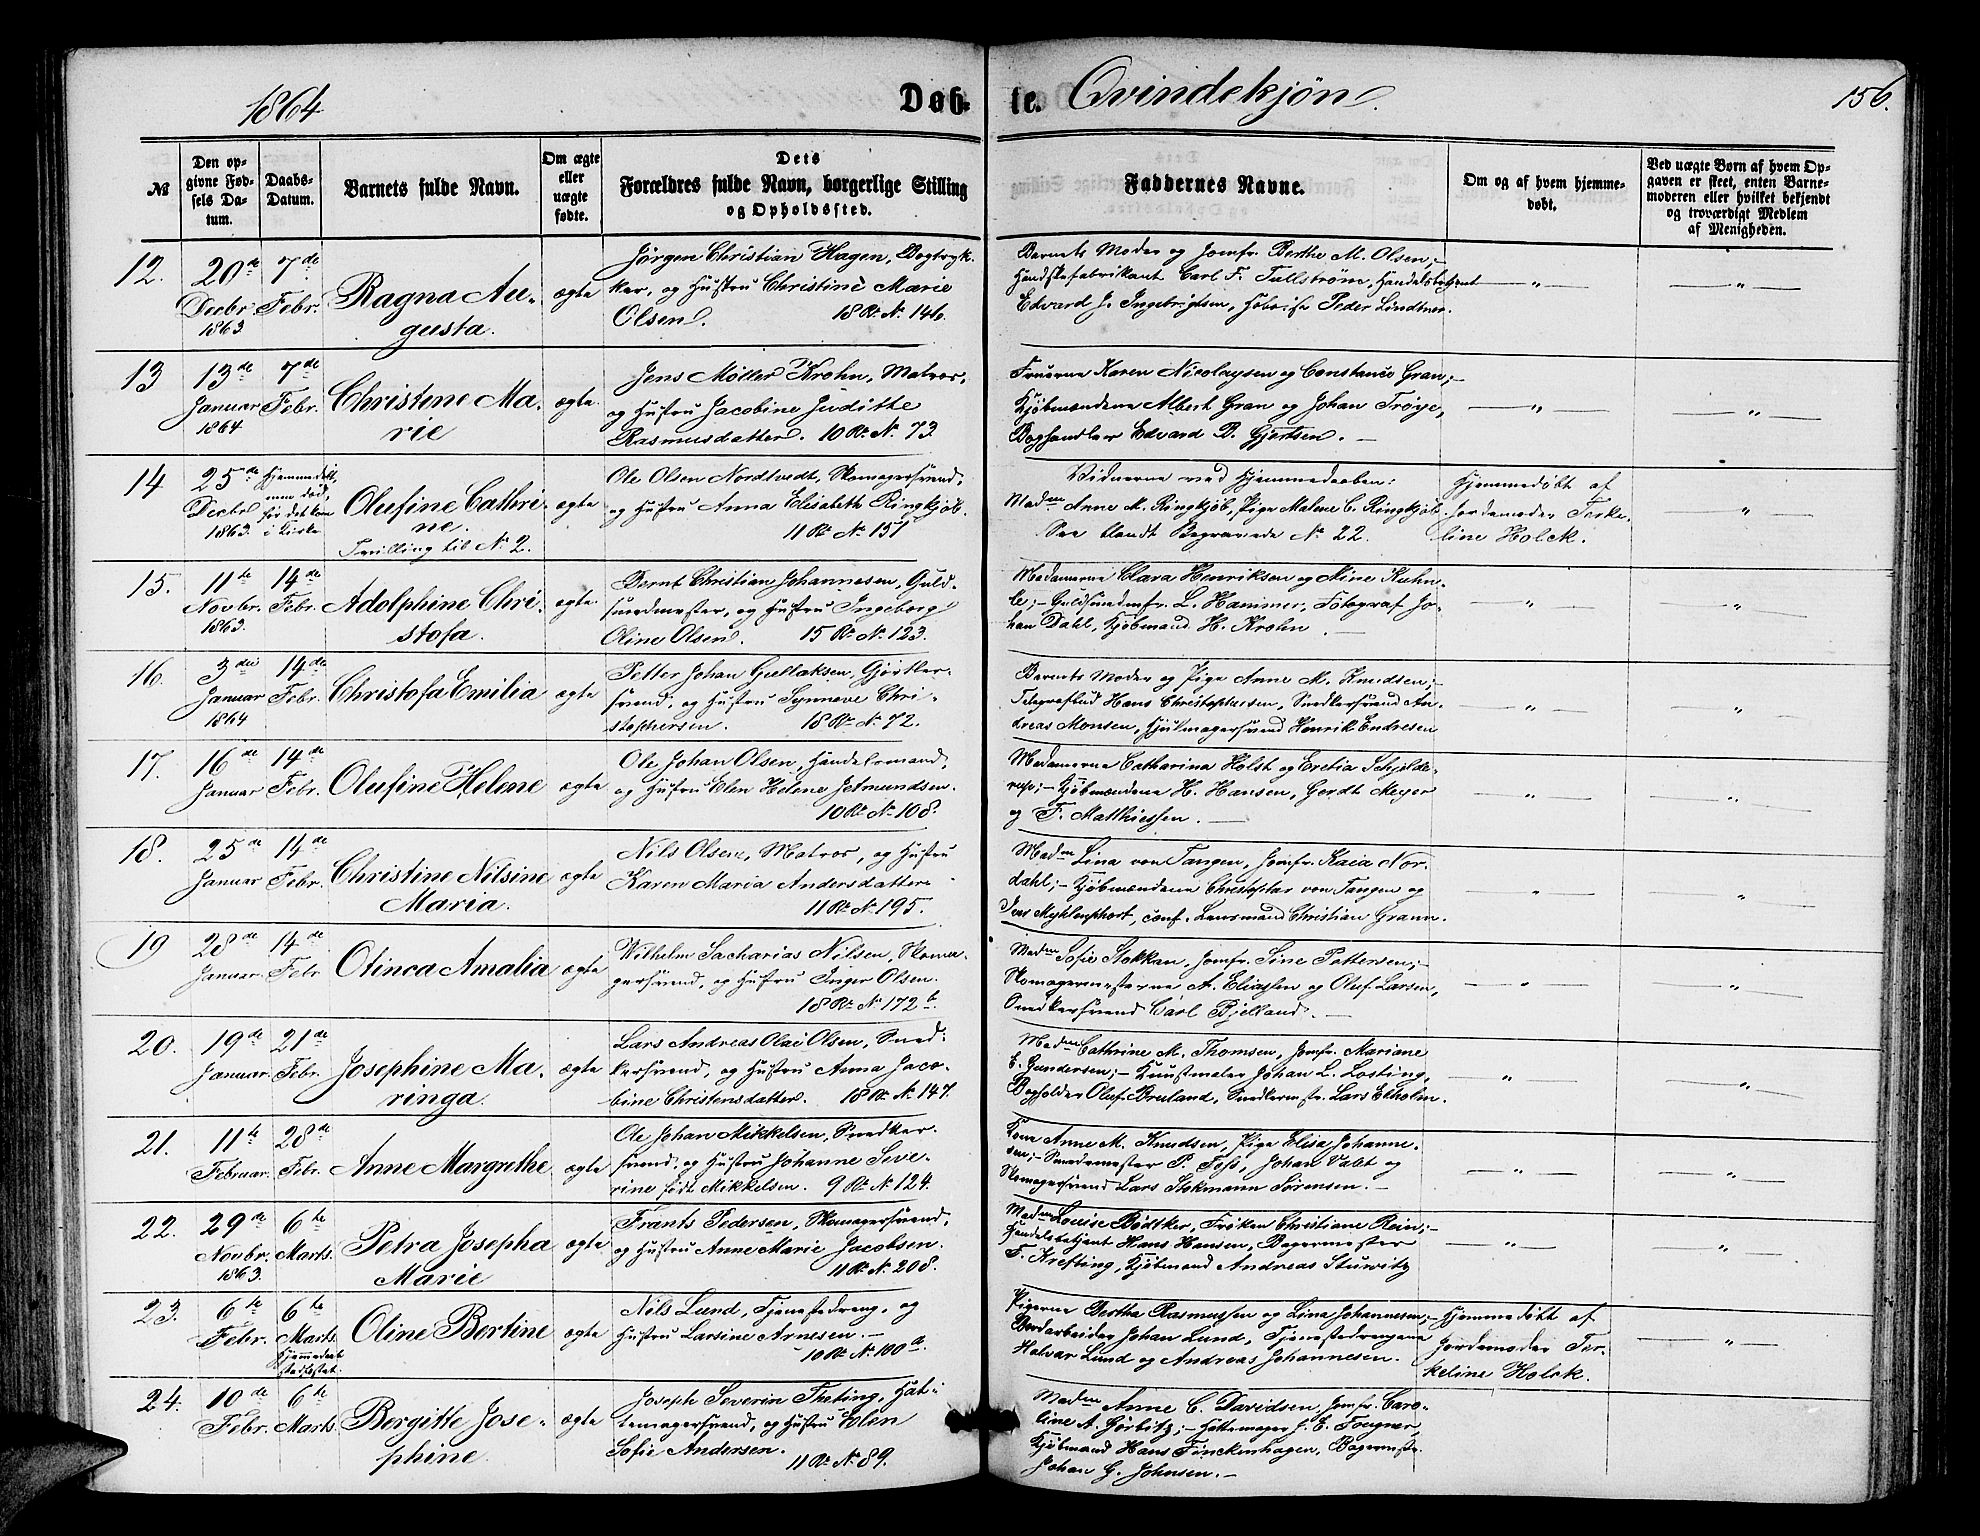 1864
Døb-
te. Qvindekjøn.
156.
№
Den op-
givne Fød-
sels Da-
tum.
Daabs-
Datum.
Barnets fulde Navn.
Om ægte
eller
uægte
fødte.
Dets
Forældres fulde Navn, borgerlige Stilling
og Opholdssted.
Faddernes Navne.
Om og af hvem hjemme-
døbt.
Ved uægte Børn af hvem Op-
gaven er skeet, enten Barne-
moderen eller hvilket bekjendt
og troværdigt Medlem
af Menigheden.
12.
20de
Decbr.
1863
7de
Febr.
Ragna Au-
gusta.
ægte
Jørgen Christian Hagen, Bogtryk-
ker, og Hustru Christine Marie
Olsen. 18 R. N. 146.
Barnets Moder og Jomfr. Berthe M. Olsen;-
Handskefabrikant Carl F. Tullstrøm, Handelsbetjent
Edvard J. Ingebrigtsen, Peder Lindtner.
— „ —
— „ —
13
13de
Januar
1864
7de
Febr.
Christene Ma-
rie
ægte.
Jens Møller Krohn, Matros,
og Hustru Jacobine Judithe
Rasmusdatter. 10 R. N. 73.
Fruerne Karen Nicolaysen og Constance Gran;-
Kjøbmændene Albert Gran og Johan Trøye,
Boghandler Edvard B. Gjertsen. —
— „ —
— „ —
14
25de
Decbr
1863.
Hjemmedøbt,
men død,
før det kom
i Kirke
Olufine Cathri-
ne.
Tvilling til N. 2.
ægte
Ole Olsen Nordtvedt, Skomagersvend,
og Hustru Anna Elisabeth Ringkjøb.
11 R. N. 157
Vidnerne ved Hjemmedaaben:
Madm Anne M. Ringkjøb, Pige Malene C. Ringkjøb.
See blandt Begravede No 22.
Hjemmedøbt af
Jordemoder Terke-
line Holck.
— „ —
15.
11te
Novbr.
1863.
14de
Febr.
Adolphine Chri-
stofa.
ægte.
Bernt Christian Johannesen, Guld-
smedmester, og Hustru Ingeborg
Oline Olsen. 15 R. N. 123.
Madamerne Clara Henriksen og Nine Kuhn-
le;- Guldsmedmstr. L. Hammer, Fotograf Jo-
han Dahl, Kjøbmand H. Krohn. —
— „ —
— „ —
16.
3die
Januar
1864
14de
Febr.
Christofa Emilia
ægte
Petter Johan Gullaksen, Gjørtler-
svend, og Hustru Synneve Chri-
stophersen. 18 R. N. 72.
Barnets Moder og Pige Anne M. Knudsen;-
Telegrafbud Hans Christophersen, Snedkersvend An-
dreas Monsen, Hjulmagersvend Henrik Endresen
— „ —
— „ —
17.
16de
Januar
14de
Febr.
Olufine Helene
ægte
Ole Johan Olsen, Handelsmand,
og Hustru Elen Helene Jetmundsen.
10 R. N. 108.
Madamerne Catharina Holst og Eretia Schjelde-
rup;- Kjøbmændene H. Hansen, Gerdt Meyer
og F. Matthiessen. —
— „ —
— „ —
18.
25de
Januar
14de
Febr.
Christine Nilsine
Maria.
ægte
Nils Olsen, Matros, og Hustru
Karen Maria Andersdatter.
11 R. N. 195.
Madm Lina von Tangen, Jomfr. Kaia Nor-
dahl;- Kjøbmændene Christopher von Tangen og
Jens Myhlenphort, const. Lensmand Christian Grann.
— „ —
— „ —
19
28de
Januar.
14de
Febr
Otinca Amalia
ægte
Wilhelm Sacharias Nilsen, Skoma-
gersvend, og Hustru Inger Olsen.
18 R. N. 172 b.
Madm Sofie Stokkan, Jomfr. Sine Pettersen;-
Skomagermesterne A. Eliassen og Oluf Larsen,
Snedkersvend Carl Bjelland. —
— „ —
— „ —
20.
19de
Januar.
21de
Febr.
Josephine Ma-
ringa.
ægte
Lars Andreas Olai Olsen, Sned-
kersvend, og Hustru Anna Jaco-
bine Christensdatter. 18 R. N. 147.
Madm Cathrine M. Thomsen, Jomfr. Mariane
E. Gundersen;- Kunstmaler Johan L. Losting,
Bogholder Oluf Breiland, Snedkermstr. Lars Ekholm.
„
„
21.
11te
Februar.
28de
Febr.
Anne Margrethe
ægte
Ole Johan Mikkelsen, Snedker-
svend, og Hustru Johanne Seve-
rine født Mikkelsen. 9 R. N. 124.
Kone Anne M. Knudsen, Pige Elisa Johanne-
sen;- Smedemester P. Foss, Johan Valt og
Skomagersvend Lars Stokmann Sørensen. —
— „ —
— „ —
22.
29de
Novbr.
1863.
6te
Marts.
Petra Josepha
Marie
ægte
Frants Pedersen, Skomagersvend,
og Hustru Anne Marie Jacobsen.
11 R. N. 208.
Madm Louise Bødtker, Frøken Christiane Rein;-
Handelsbetjent Hans Hansen, Bagermester
F. Krefting, Kjøbmand Andreas Sturvitz
— „ —
— „ —
23.
6te
Febr.
6te
Marts.
Hjemmedaab
stadfæstet.
Oline Bertine
ægte
Nils Lund, Tjenestedreng, og
Hustru Larsine Arnesen. —
10 R. N. 100 a.
Pigerne Bertha Rasmussen og Lina Johannesen;-
Bordarbeider Johan Lund, Tjenestedrengene
Halvar Lund og Andreas Johannesen.
Hjemmedøbt af
Jordemoder Ter-
keline Holck.
— „ —
24.
10de
Febr.
6te
Marts.
Bergitte Jose-
phine.
ægte
Joseph Severin Theting, Hat-
temagersvend, og Hustru Elen
Sofie Andersen. 11 R. N. 89.
Madm Anne C. Davidsen, Jomfr. Caro-
line A. Görbitz;- Hattemager J. E. Fougner,
Kjøbmand Hans Finckenhagen, Bagermstr.
Johan G. Johnsen. —